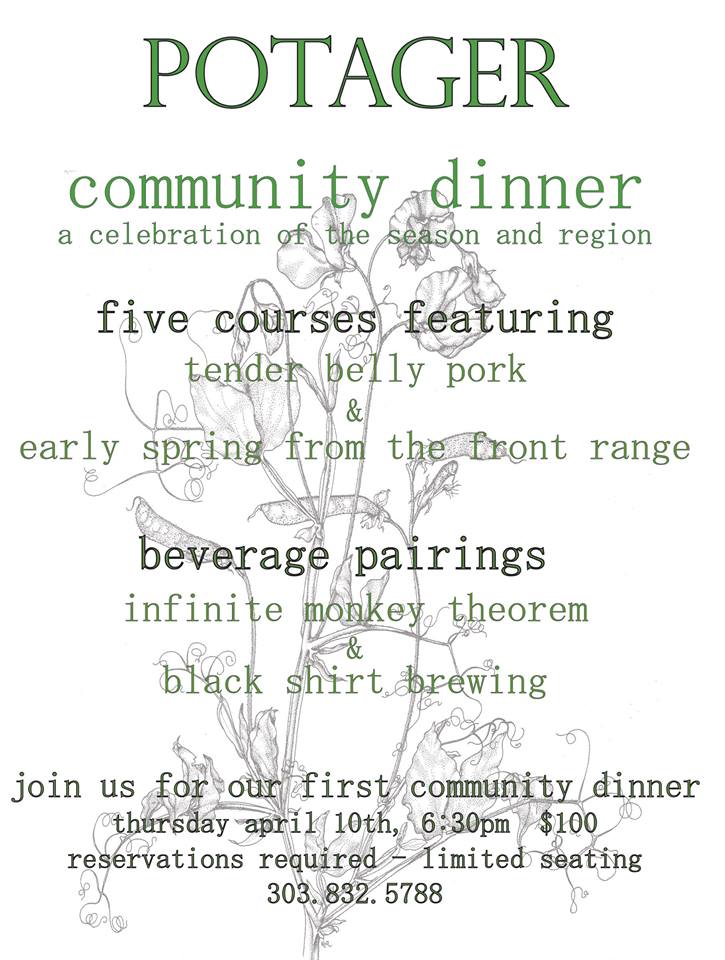 POTAGER
community dinner
a celebration of the season and region
five courses featuring
tender belly pork
&
early spring from the front range
beverage pairings
infinite monkey theorem
&
black shirt brewing
join us for our first community dinner
thursday april 10th, 6:30pm $100
reservations required - limited seating
303.832.5788